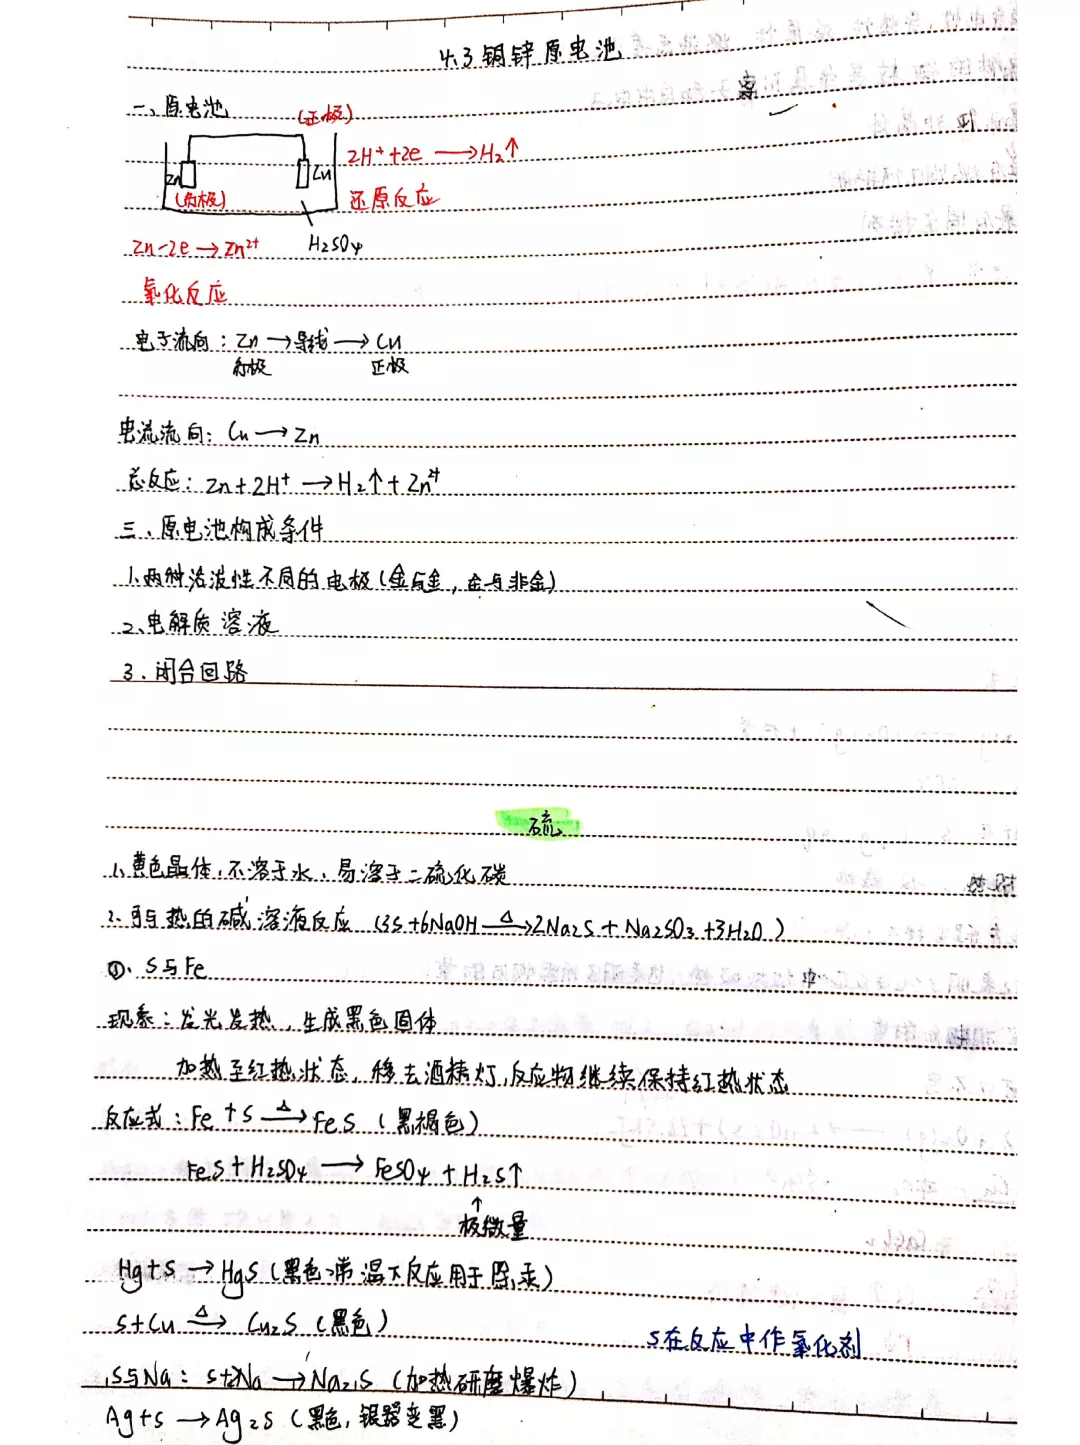 4.3 铜锌原电池
一、原电池
(正极)
2H⁺+2e ⟶ H₂↑
Zn
Cu
(负极)
还原反应
Zn-2e → Zn²⁺
H₂SO₄
氧化反应
电子流向：Zn → 导线 → Cu
负极 正极
电流流向：Cu → Zn
总反应：Zn+2H⁺ → H₂↑+Zn²⁺
三、原电池构成条件
1、两种活泼性不同的电极(金与金，金与非金)
2、电解质溶液
3、闭合回路
硫
1、黄色晶体，不溶于水，易溶于二硫化碳
2、可与热的碱溶液反应 (3S+6NaOH △→ 2Na₂S+Na₂SO₃+3H₂O)
①、S与Fe
现象：发光发热，生成黑色固体
加热至红热状态，移去酒精灯，反应物继续保持红热状态
反应式：Fe+S △→ FeS (黑褐色)
FeS+H₂SO₄ → FeSO₄+H₂S↑
↑
极微量
Hg+S → HgS (黑色，常温下反应用于除汞)
S+Cu △→ Cu₂S (黑色)
S在反应中作氧化剂
S与Na：S+2Na → Na₂S (加热研磨爆炸)
Ag+S → Ag₂S (黑色，银器变黑)